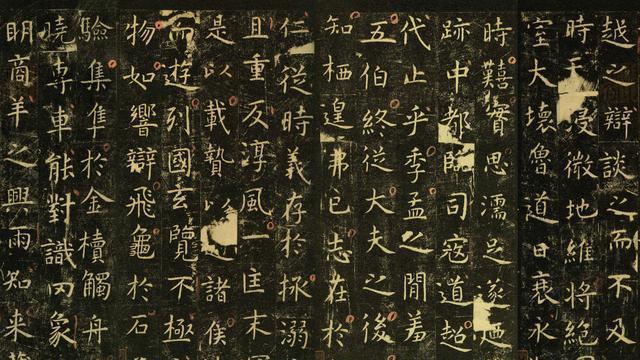 越之辯談之而不及
時天浸微地維將絕
室大壞魯道日衰永
時囏實思濡足遂迺
跡中都臨司寇道超
代止乎季孟之閒羞
五伯終從大夫之後
知栖遑弗已志在於
仁從時義存於拯溺
且重反淳風一匡末
是以載贄以諸侯
而遊列國玄覽不極
物如響辯飛龜於石
驗集隼於金櫝觸舟
曉專車能對識罔象
明商羊之興雨知来